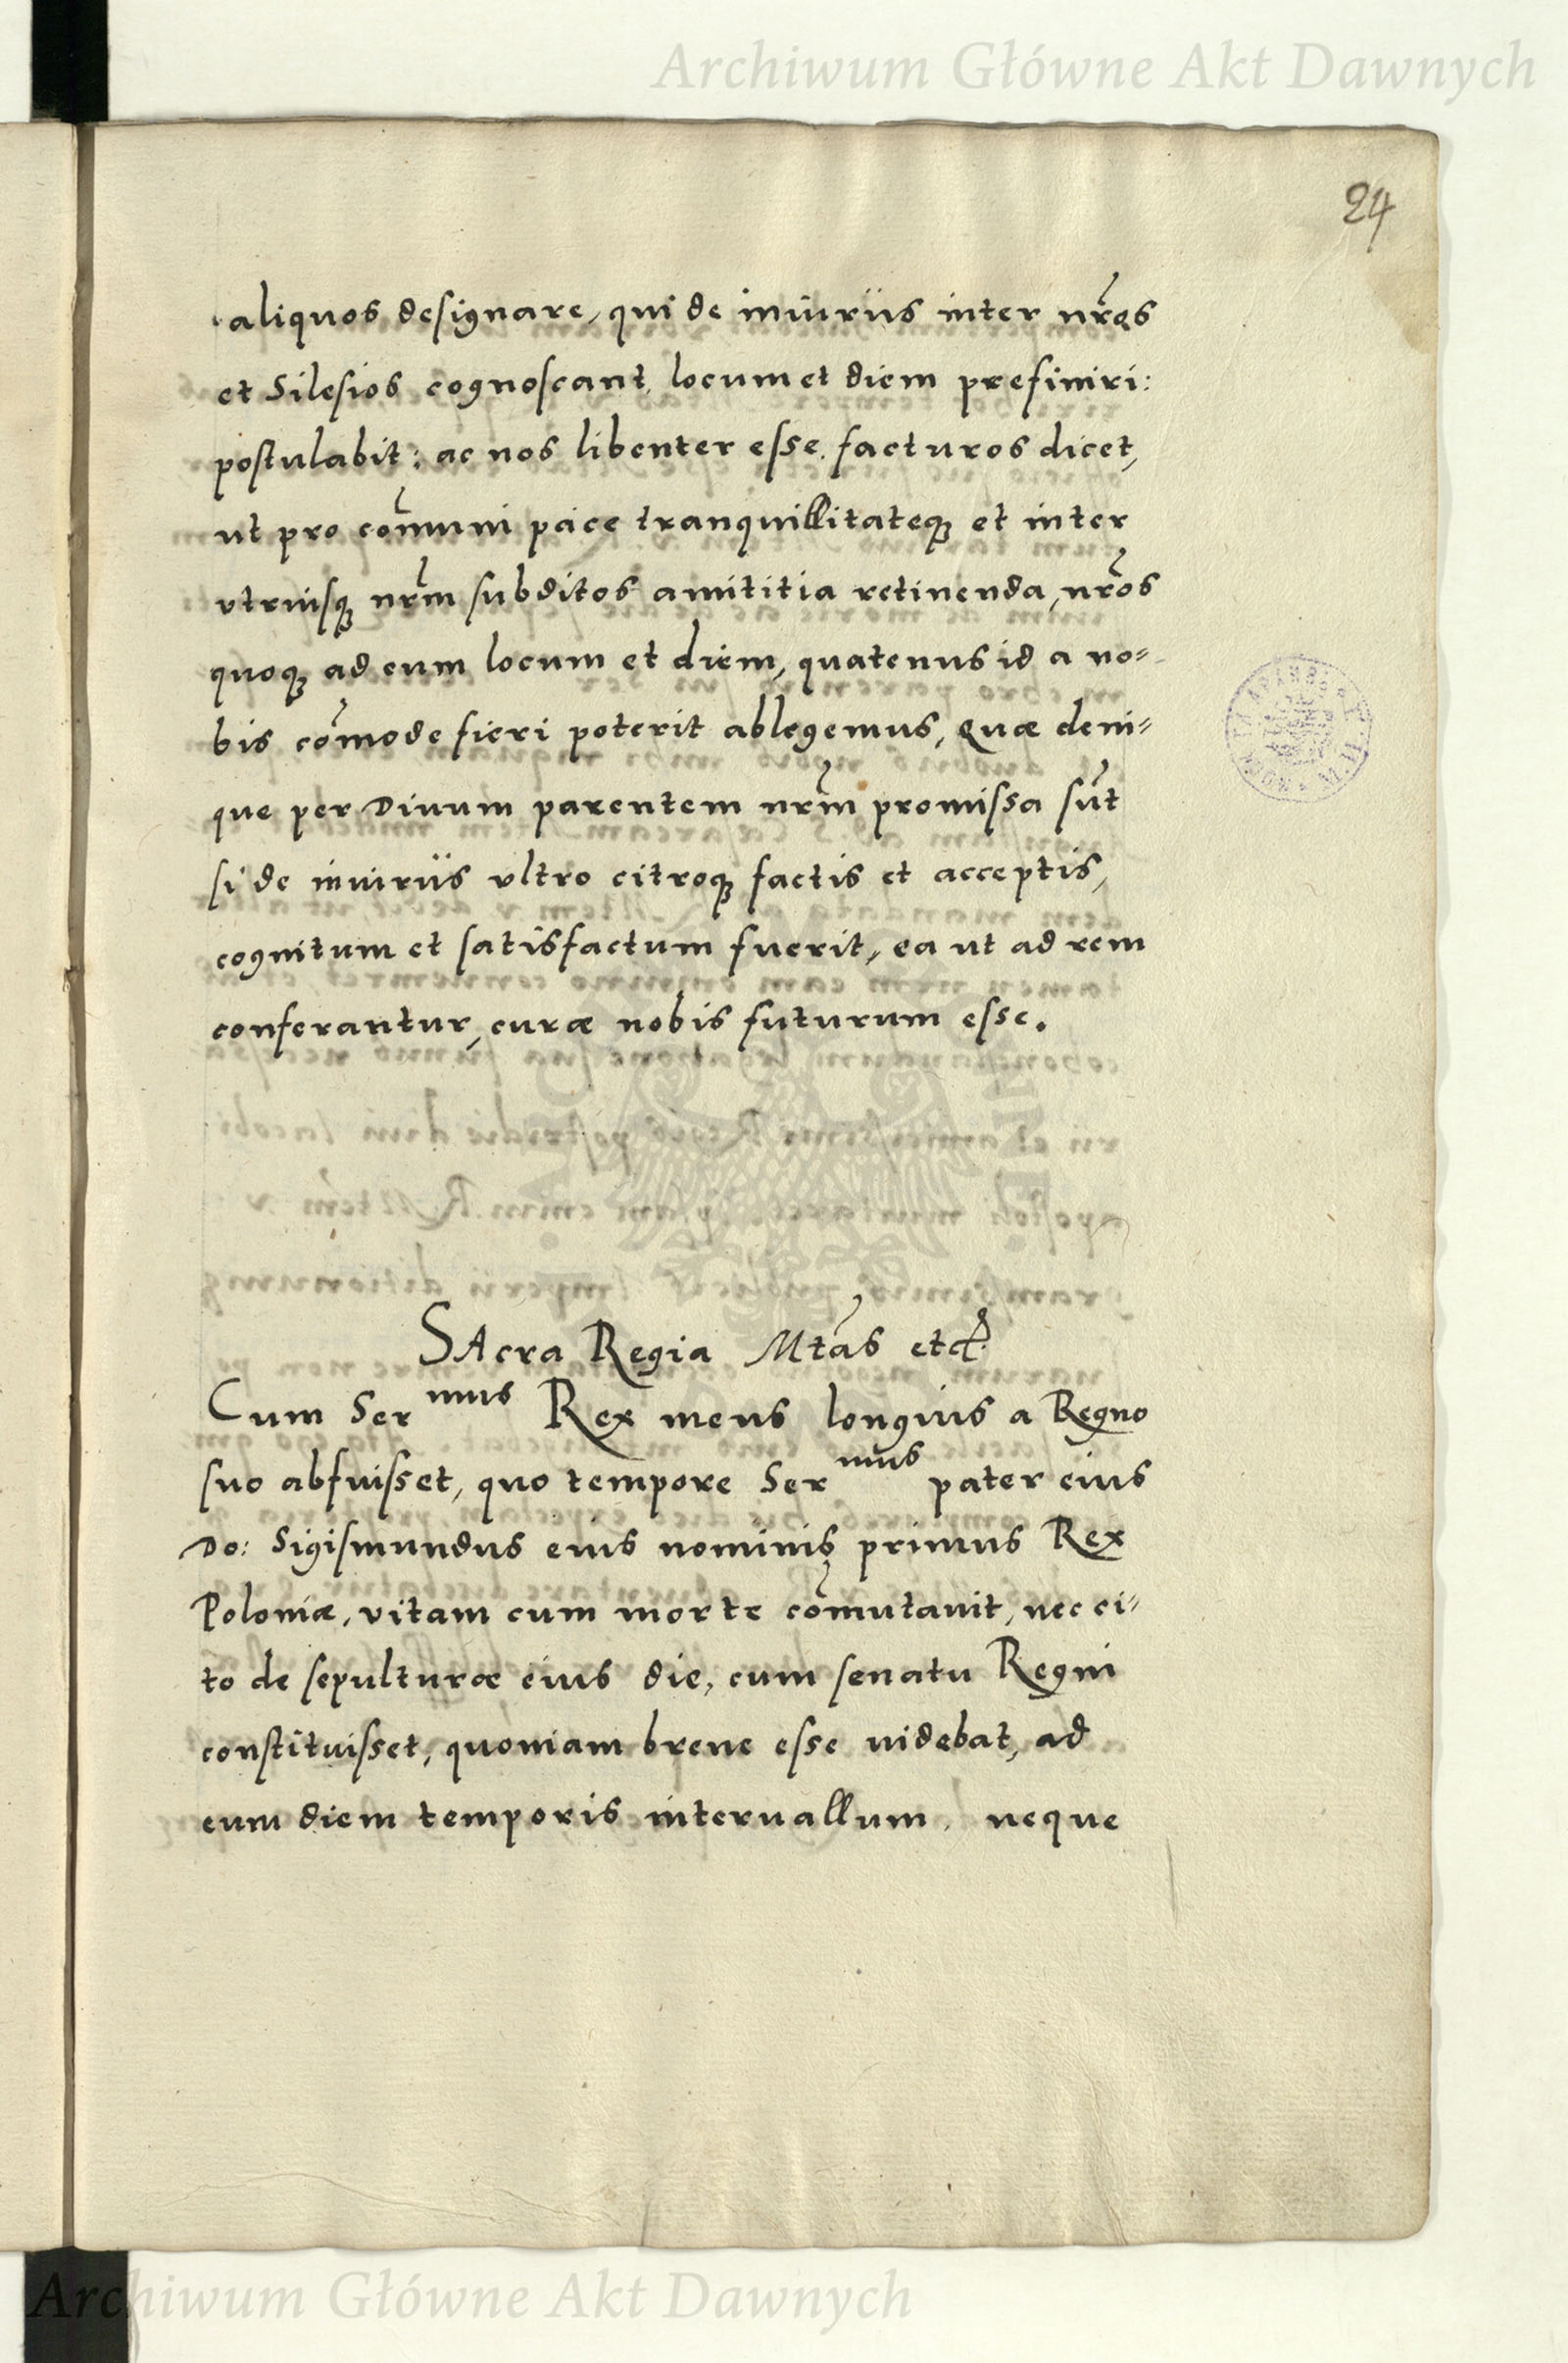 Archiwum Główne Akt Dawnych
24
aliquos designare, qui de iniuriis inter nr̃os
et Silesios cognoscant, locum et diem prefiniri:
postulabit: ac nos libenter esse facturos dicet,
ut pro com̃uni pace tranquillitateq; et inter
vtriusq; nr̃m subditos amititia retinenda, nr̃os
quoq; ad eum locum et diem, quatenus id a no=
bis com̃ode fieri poterit ablegemus, quæ deni=
que per Diuum parentem nr̃m promissa sũt
si de iniuriis vltro citroq; factis et acceptis,
cognitum et satisfactum fuerit, ea ut ad rem
conferantur, curæ nobis futurum esse.
SAcra Regia Mtãs etc̃
Cum Ser mus Rex meus longius a Regno
suo abfuisset, quo tempore Ser mus pater eius
Do: Sigismundus eius nominis primus Rex
Poloniæ, vitam cum morte com̃utauit, nec ci=
to de sepulturæ eius die, cum senatu Regni
constituisset, quoniam breue esse uidebat, ad
eum diem temporis interuallum, neque
Archiwum Główne Akt Dawnych